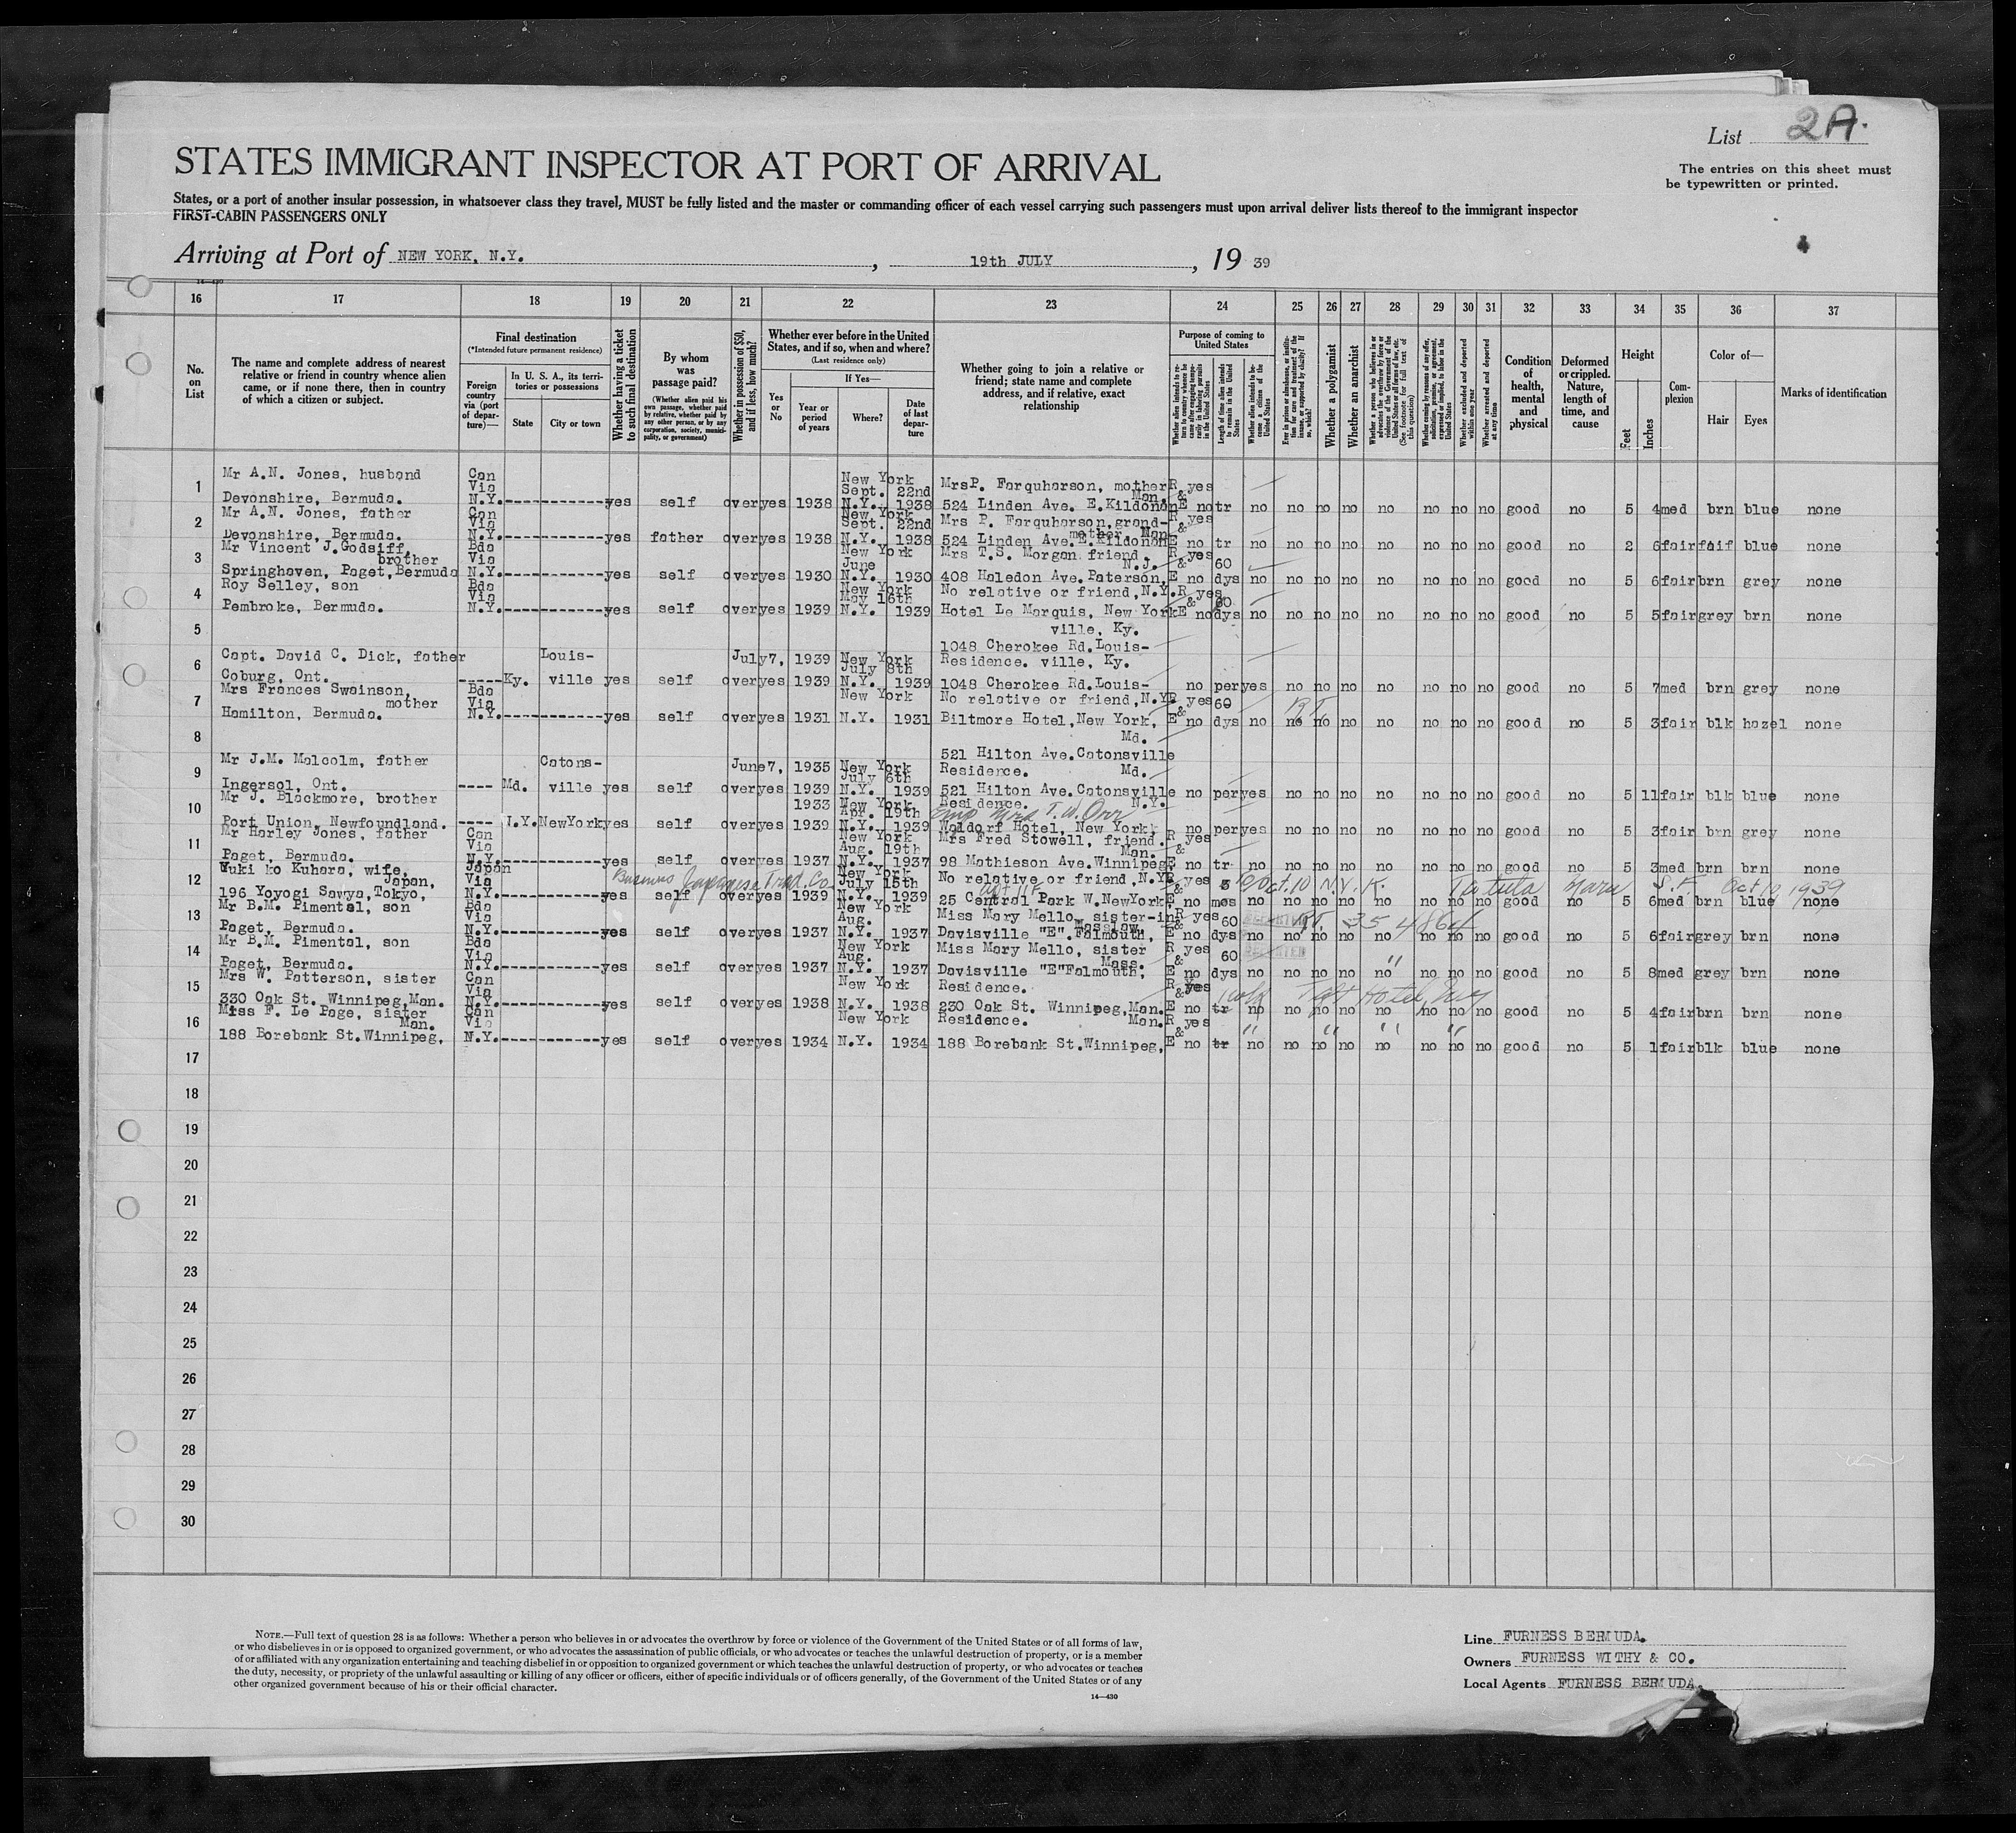 List 2A.
STATES IMMIGRANT INSPECTOR AT PORT OF ARRIVAL
The entries on this sheet must
be typewritten or printed.
States, or a port of another insular possession, in whatsoever class they travel, MUST be fully listed and the master or commanding officer of each vessel carrying such passengers must upon arrival deliver lists thereof to the immigrant inspector
FIRST-CABIN PASSENGERS ONLY
Arriving at Port of NEW YORK, N.Y. , 19th JULY , 19 39
16 17 18 19 20 21 22 23 24 25 26 27 28 29 30 31 32 33 34 35 36 37
No. on List
The name and complete address of nearest relative or friend in country whence alien came, or if none there, then in country of which a citizen or subject.
Final destination
(*Intended future permanent residence)
Foreign country via (port of departure)—
In U. S. A., its territories or possessions
State City or town
Whether having a ticket to such final destination
By whom was passage paid?
(Whether alien paid his own passage, whether paid by relative, whether paid by any other person, or by any corporation, society, municipality, or government)
Whether in possession of $50, and if less, how much?
Whether ever before in the United States, and if so, when and where?
(Last residence only)
Yes or No
If Yes—
Year or period of years
Where?
Date of last departure
Whether going to join a relative or friend; state name and complete address, and if relative, exact relationship
Purpose of coming to United States
Whether alien intends to return to country whence he came after engaging temporarily in laboring pursuits in the United States
Length of time alien intends to remain in the United States
Whether alien intends to become a citizen of the United States
Ever in prison or almshouse, or institution for care and treatment of the insane, or supported by charity? If so, which?
Whether a polygamist
Whether an anarchist
Whether a person who believes in or advocates the overthrow by force or violence of the Government of the United States or all forms of law, etc. (See footnote for full text of this question)
Whether coming by reason of any offer, solicitation, promise, or agreement, expressed or implied, to labor in the United States
Whether excluded and deported within one year
Whether arrested and deported at any time
Condition of health, mental and physical
Deformed or crippled. Nature, length of time, and cause
Height
Feet Inches
Complexion
Color of—
Hair Eyes
Marks of identification
1 Mr A.N. Jones, husband Can Via New York Sept. 22nd MrsP. Farquharson, mother R yes
Devonshire, Bermuda. N.Y. yes self over yes 1938 N.Y. 1938 524 Linden Ave. E.Kildonan Man. & E no tr no no no no no no no no good no 5 4 med brn blue none
2 Mr A.N. Jones, father Can Via New York Sept. 22nd Mrs P. Farquharson, grand-mother Man. R yes
Devonshire, Bermuda. N.Y. yes father over yes 1938 N.Y. 1938 524 Linden Ave.E.Kildonan & E no tr no no no no no no no no good no 2 6 fair fair blue none
3 Mr Vincent J.Godsiff, brother Bda Via New York June Mrs T.S. Morgan friend. N.J. R yes
Springhaven, Paget,Bermuda N.Y. yes self over yes 1930 N.Y. 1930 408 Haledon Ave. Paterson, & E no 60 dys no no no no no no no no good no 5 6 fair brn grey none
4 Roy Selley, son Bda Via New York May 16th No relative or friend,N.Y. R yes
Pembroke, Bermuda. N.Y. yes self over yes 1939 N.Y. 1939 Hotel Le Marquis, New York & E no 60 dys no no no no no no no no good no 5 5 fair grey brn none
5 ville, Ky.
1048 Cherokee Rd.Louis-
6 Capt. David C. Dick, father Louis- July7, 1939 New York July 8th Residence. ville, Ky.
Coburg, Ont. ----- Ky. ville yes self over yes 1939 N.Y. 1939 1048 Cherokee Rd.Louis- no per yes no no no no no no no good no 5 7 med brn grey none
7 Mrs Frances Swainson, mother Bda Via New York No relative or friend,N.Y. R yes
Hamilton, Bermuda. N.Y. yes self over yes 1931 N.Y. 1931 Biltmore Hotel,New York, & E no 60 dys no no no no no no no no good no 5 3 fair blk hazel none
8 Md.
521 Hilton Ave.Catonsville
9 Mr J.M. Malcolm, father Catons- June7, 1935 New York July 6th Residence. Md.
Ingersol, Ont. ---- Md. ville yes self over yes 1939 N.Y. 1939 521 Hilton Ave.Catonsville no per yes no no no no no no no good no 5 11 fair blk blue none
10 Mr J. Blackmore, brother 1933 New York Apr. 19th Residence. N.Y.
Mrs T.W. Orr
Port Union, Newfoundland. ---- N.Y. NewYork yes self over yes 1939 N.Y. 1939 Waldorf Hotel, New York, no per yes no no no no no no no good no 5 3 fair brn grey none
11 Mr Harley Jones, father Can Via New York Aug. 19th Mrs Fred Stowell, friend. Man. R yes
Paget, Bermuda. N.Y. yes self over yes 1937 N.Y. 1937 98 Mathieson Ave.Winnipeg & E no tr no no no no no no no no good no 5 3 med brn brn none
12 Yuki ko Kuhara, wife, Japan, Japan Via Business Japanese Trad. Co. New York July 15th No relative or friend,N.Y. R yes Oct. 10 N.Y.K. Tatuta Maru S.F. Oct 10 1939
196 Yoyogi Sawya,Tokyo, N.Y. yes self over yes 1939 N.Y. 1939 25 Central Park W.NewYork, Apt 11F & E no 3 mos no no no no no no no no good no 5 6 med brn blue none
13 Mr B.M. Pimental, son Bda Via New York Aug. Miss Mary Mello, sister-in R yes
Paget, Bermuda. N.Y. yes self over yes 1937 N.Y. 1937 Davisville "E".Falmouth, & E no 60 dys no no no no no no no no good no 5 6 fair grey brn none
14 Mr B.M. Pimental, son Bda Via New York Aug. Miss Mary Mello, sister Mass. R yes
Paget, Bermuda. N.Y. yes self over yes 1937 N.Y. 1937 Davisville "E"Falmouth, & E no 60 dys no no no no no no no no good no 5 8 med grey brn none
15 Mrs W. Patterson, sister Can Via New York Residence. R yes
330 Oak St. Winnipeg,Man. N.Y. yes self over yes 1938 N.Y. 1938 230 Oak St. Winnipeg,Man. & E no tr no no no no no no no no good no 5 4 fair brn brn none
16 Miss F. Le Page, sister Man. Can Via New York Residence. Man. R yes
188 Borebank St.Winnipeg, N.Y. yes self over yes 1934 N.Y. 1934 188 Borebank St.Winnipeg, & E no tr no no no no no no no no good no 5 1 fair blk blue none
17
18
19
20
21
22
23
24
25
26
27
28
29
30
NOTE.—Full text of question 28 is as follows: Whether a person who believes in or advocates the overthrow by force or violence of the Government of the United States or of all forms of law,
or who disbelieves in or is opposed to organized government, or who advocates the assassination of public officials, or who advocates or teaches the unlawful destruction of property, or is a member
of or affiliated with any organization entertaining and teaching disbelief in or opposition to organized government or which teaches the unlawful destruction of property, or who advocates or teaches
the duty, necessity, or propriety of the unlawful assaulting or killing of any officer or officers, either of specific individuals or of officers generally, of the Government of the United States or of any
other organized government because of his or their official character.
14—430
Line FURNESS BERMUDA.
Owners FURNESS WITHY & CO.
Local Agents FURNESS BERMUDA.